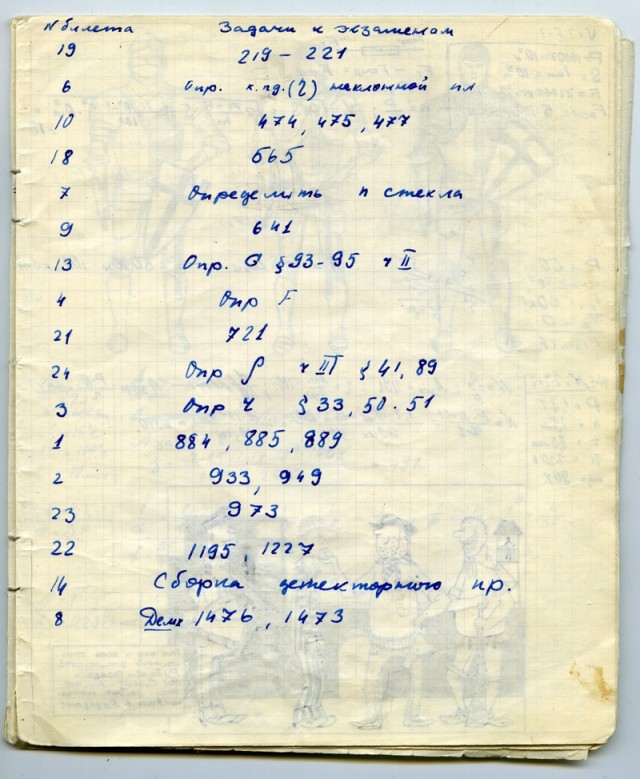 N билета Задачи к экзаменам
19 219 – 221
6 Опр. к.п.д. (η) наклонной пл
10 474, 475, 477
18 565
7 Определить n стекла
9 641
13 Опр. § 93-95 ч II
4 Опр F
21 721
24 Опр ρ ч III § 41, 89
3 Опр § 33, 50. 51
1 884, 885, 889
2 933, 949
23 973
22 1195, 1227
14 Сборка детекторного пр.
8 1476, 1473